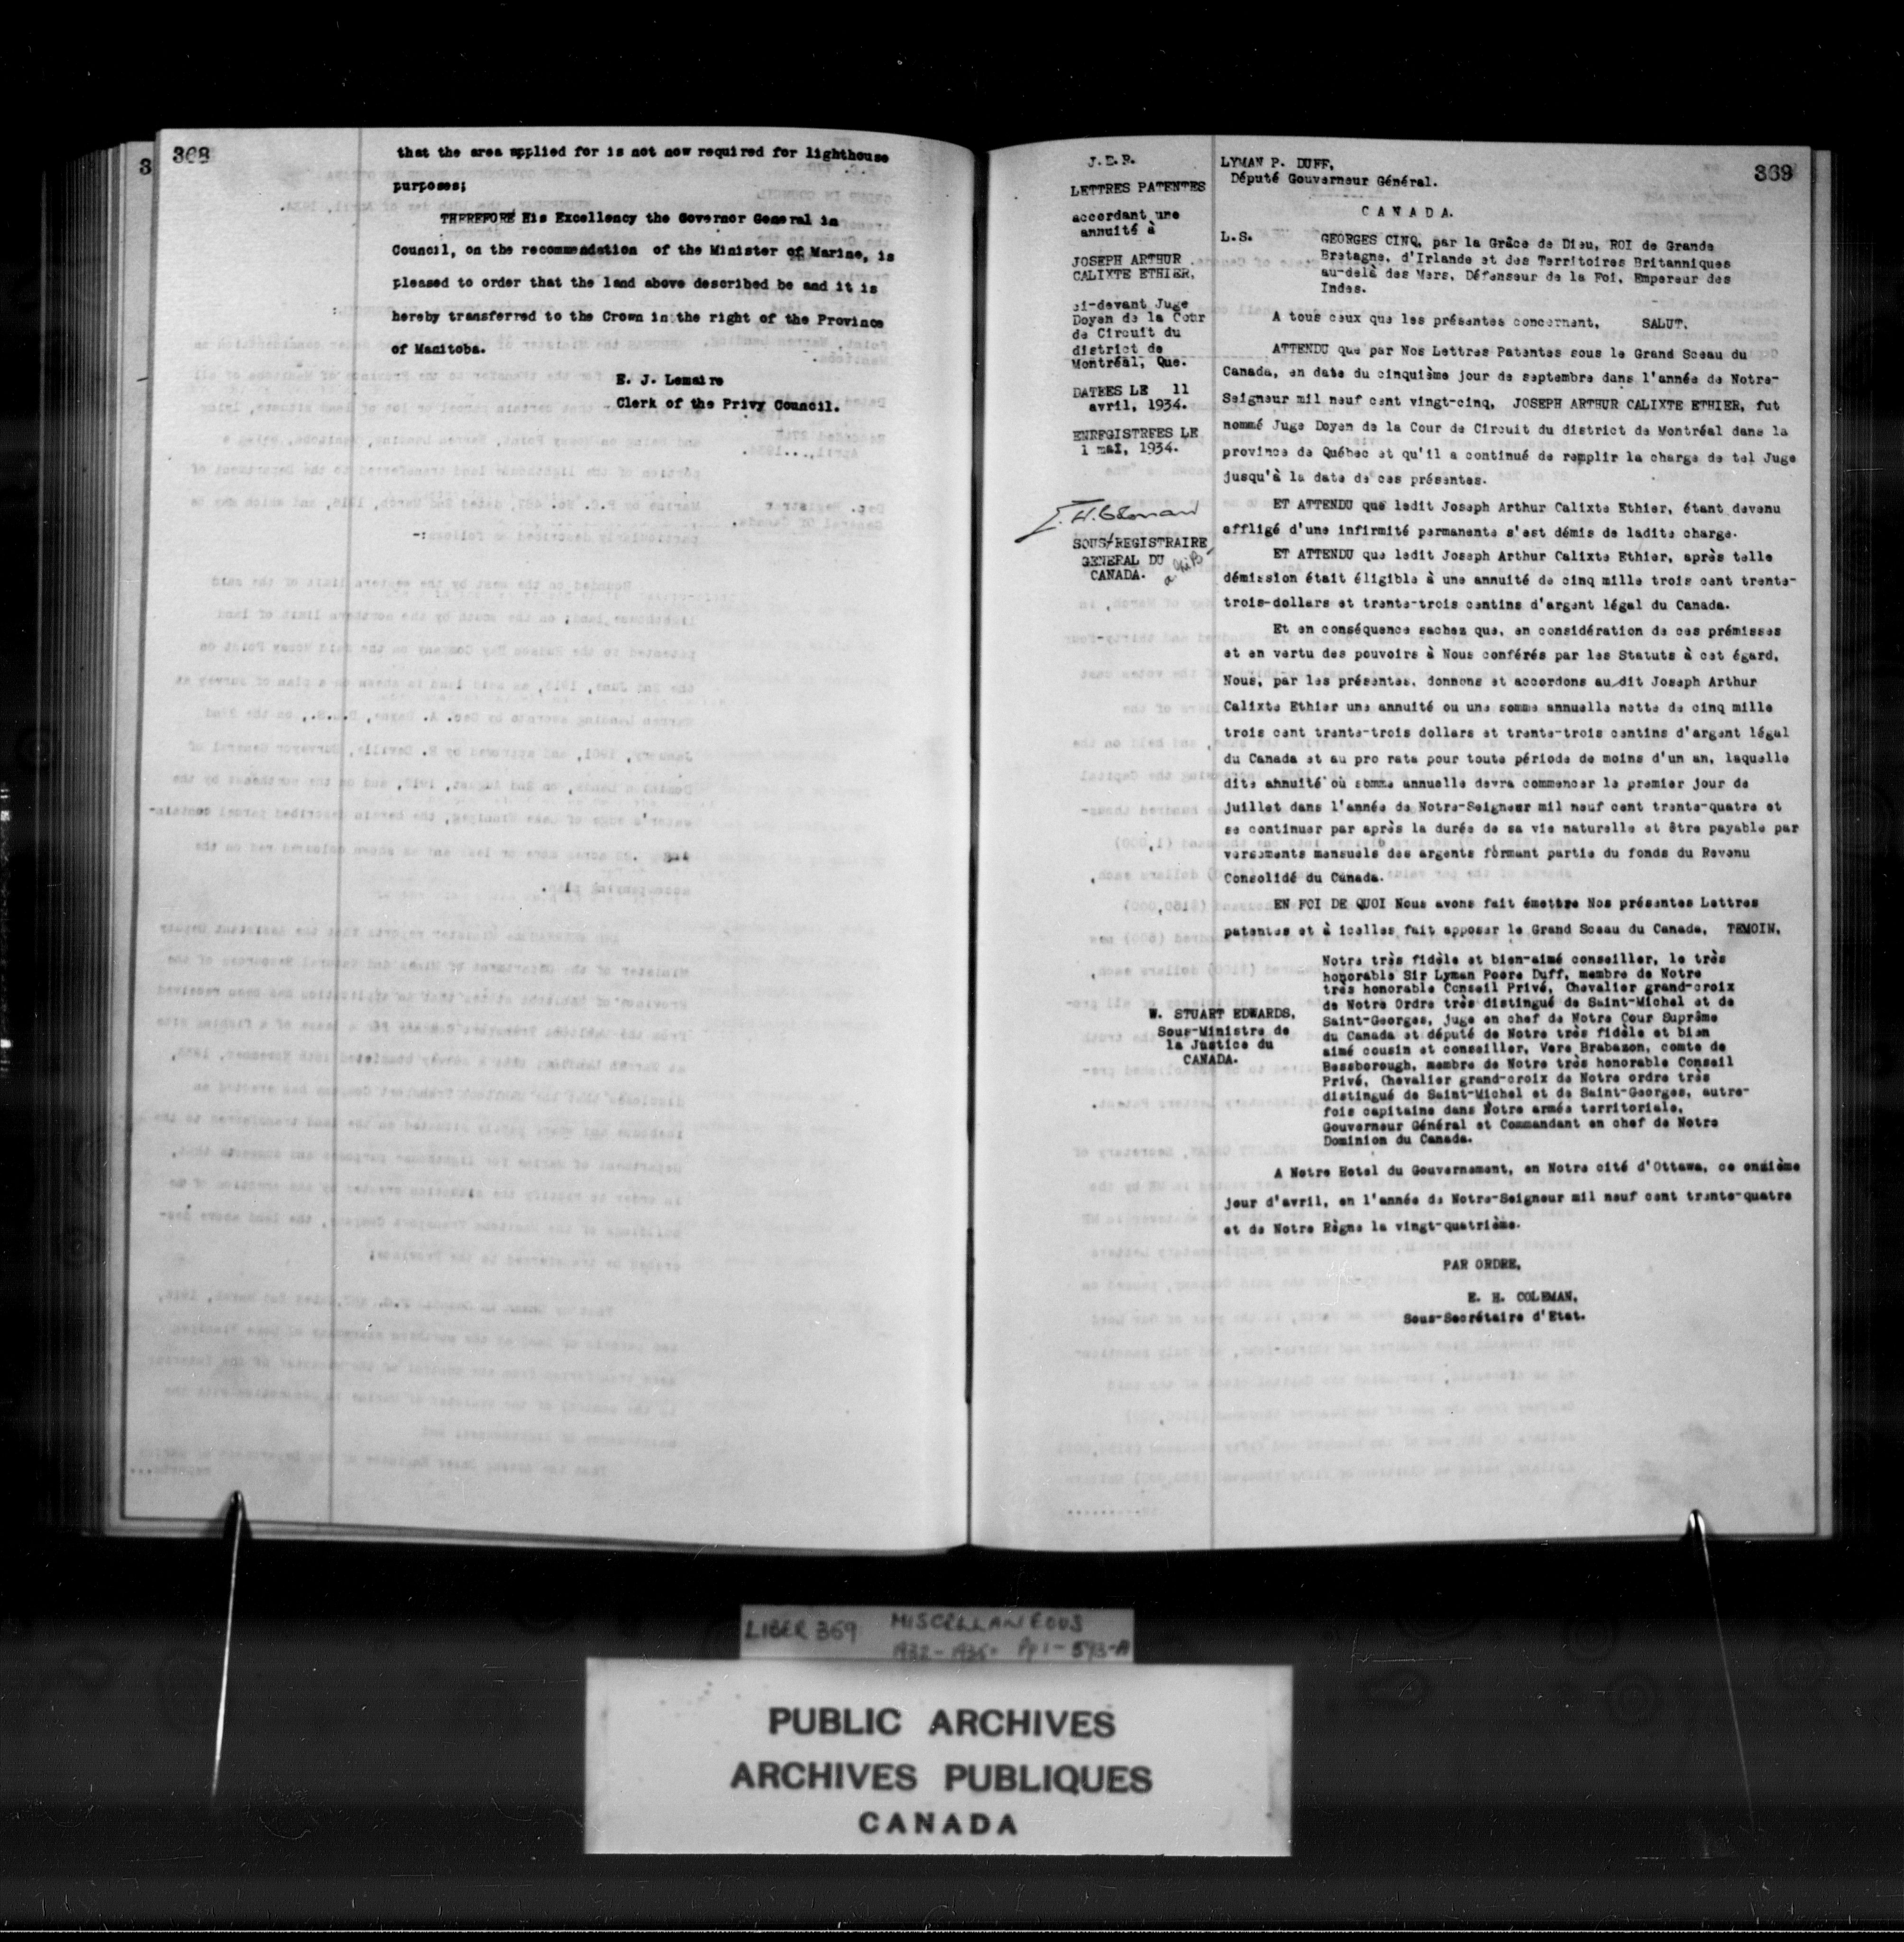 368
that the area applied for is not now required for lighthouse
purposes;
THEREFORE His Excellency the Governor General in
Council, on the recommendation of the Minister of Marine, is
pleased to order that the land above described be and it is
hereby transferred to the Crown in the right of the Province
of Manitoba.
E. J. Lemaire
Clerk of the Privy Council.
3
369
J.E.R.
LETTRES PATENTES
accordant une
annuité à
JOSEPH ARTHUR
CALIXTE ETHIER,
ci-devant Juge
Doyen de la Cour
de Circuit du
district de
Montréal, Que.
DATEES LE 11
avril, 1934.
ENREGISTREES LE
1 mai, 1934.
E.H. Coleman
SOUS/REGISTRAIRE
GENERAL DU
CANADA.
LYMAN P. DUFF,
Député Gouverneur Général.
CANADA.
L.S.
GEORGES CINQ, par la Grâce de Dieu, ROI de Grande
Bretagne, d'Irlande et des Territoires Britanniques
au-delà des Mers, Défenseur de la Foi, Empereur des
Indes.
A tous ceux que les présentes concernent, SALUT.
ATTENDU que par Nos Lettres Patentes sous le Grand Sceau du
Canada, en date du cinquième jour de septembre dans l'année de Notre-
Seigneur mil neuf cent vingt-cinq, JOSEPH ARTHUR CALIXTE ETHIER, fut
nommé Juge Doyen de la Cour de Circuit du district de Montréal dans la
province de Québec et qu'il a continué de remplir la charge de tel Juge
jusqu'à la date de ces présentes.
ET ATTENDU que ledit Joseph Arthur Calixte Ethier, étant devenu
affligé d'une infirmité permanente s'est démis de ladite charge.
ET ATTENDU que ledit Joseph Arthur Calixte Ethier, après telle
démission était éligible à une annuité de cinq mille trois cent trente-
trois-dollars et trente-trois centins d'argent légal du Canada.
Et en conséquence sachez que, en considération de ces prémisses
et en vertu des pouvoirs à Nous conférés par les Statuts à cet égard,
Nous, par les présentes, donnons et accordons au dit Joseph Arthur
Calixte Ethier une annuité ou une somme annuelle nette de cinq mille
trois cent trente-trois dollars et trente-trois centins d'argent légal
du Canada et au pro rata pour toute période de moins d'un an, laquelle
dite annuité où somme annuelle devra commencer le premier jour de
juillet dans l'année de Notre-Seigneur mil neuf cent trente-quatre et
se continuer par après la durée de sa vie naturelle et être payable par
versements mensuels des argents formant partie du fonds du Revenu
Consolidé du Canada.
EN FOI DE QUOI Nous avons fait émettre Nos présentes Lettres
patentes et à icelles fait apposer le Grand Sceau du Canada, TEMOIN,
Notre très fidèle et bien-aimé conseiller, le très
honorable Sir Lyman Poore Duff, membre de Notre
très honorable Conseil Privé, Chevalier grand-croix
de Notre Ordre très distingué de Saint-Michel et de
Saint-Georges, juge en chef de Notre Cour Suprême
du Canada et député de Notre très fidèle et bien
aimé cousin et conseiller, Vere Brabazon, comte de
Bessborough, membre de Notre très honorable Conseil
Privé, Chevalier grand-croix de Notre ordre très
distingué de Saint-Michel et de Saint-Georges, autre-
fois capitaine dans Notre armée territoriale,
Gouverneur Général et Commandant en chef de Notre
Dominion du Canada.
W. STUART EDWARDS,
Sous-Ministre de
la Justice du
CANADA.
A Notre Hotel du Gouvernement, en Notre cité d'Ottawa, ce onzième
jour d'avril, en l'année de Notre-Seigneur mil neuf cent trente-quatre
et de Notre Règne la vingt-quatrième.
PAR ORDRE,
E. H. COLEMAN,
Sous-Secrétaire d'Etat.
LIBER 369 MISCELLANEOUS
1932-1935 Pp 1-593-A
PUBLIC ARCHIVES
ARCHIVES PUBLIQUES
CANADA